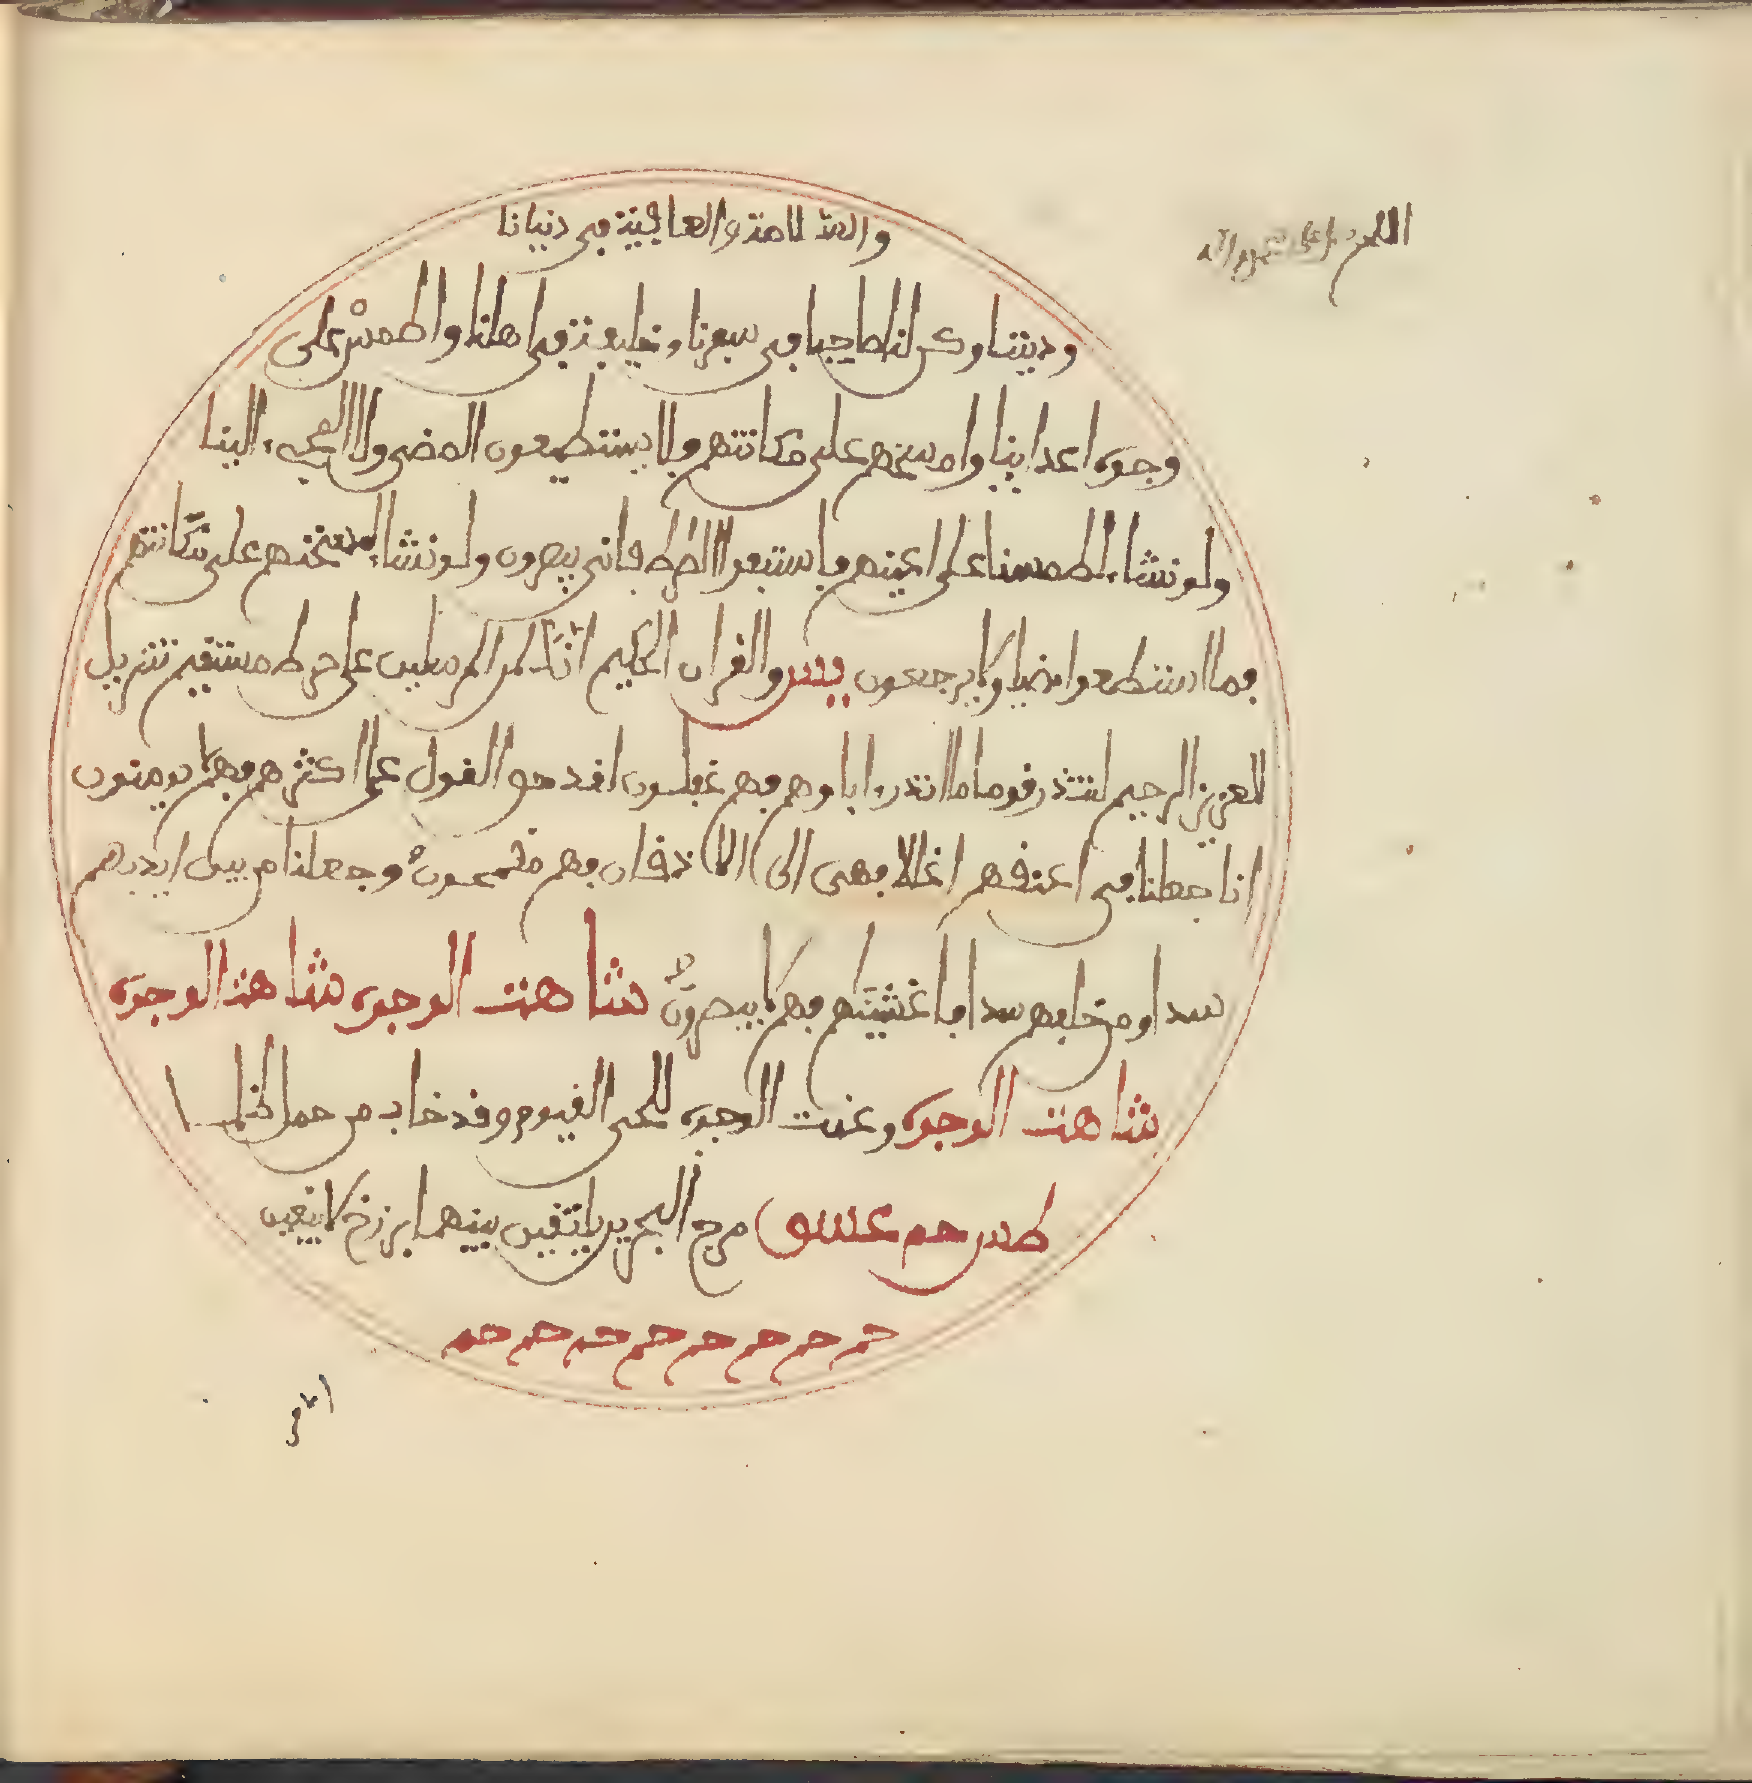 اللهم صل على
والسلامة والعافية في دنيانا
وديننا وكن لنا صاحبا في سفرنا وخليفة في اهلنا واطمسْ على
وجوه اعداينا وامسخهم على مكانتهم فلا يستطيعون المضي ولا المجيء الينا
ولو نشاء لطمسنا على اعينهم فاستبقوا الصرط فانى يبصرون ولو نشاء لمسخنهم على مكانتهم
فما استطعوا مضيا ولا يرجعون يس والقران الحكيم انك لمن المرسلين على صرط مستقيم تنزيل
العزيز الرحيم لتنذر قوما ما انذر اباوهم فهم غفلون لقد حق القول على اكثرهم فهم لا يومنون
انا جعلنا في اعنقهم اغللا فهى الى الاذقان فهم مقمحون وجعلنا من بين ايديهم
سدا ومن خلفهم سدا فاغشينهم فهم لا يبصرون شاهت الوجوه شاهت الوجوه
شاهت الوجوه وعنت الوجوه للحي القيوم وقد خاب من حمل ظلما
طس حم عسق مرج البحرين يلتقين بينهما برزخ لا يبغين
حم حم حم حم حم حم حم حم